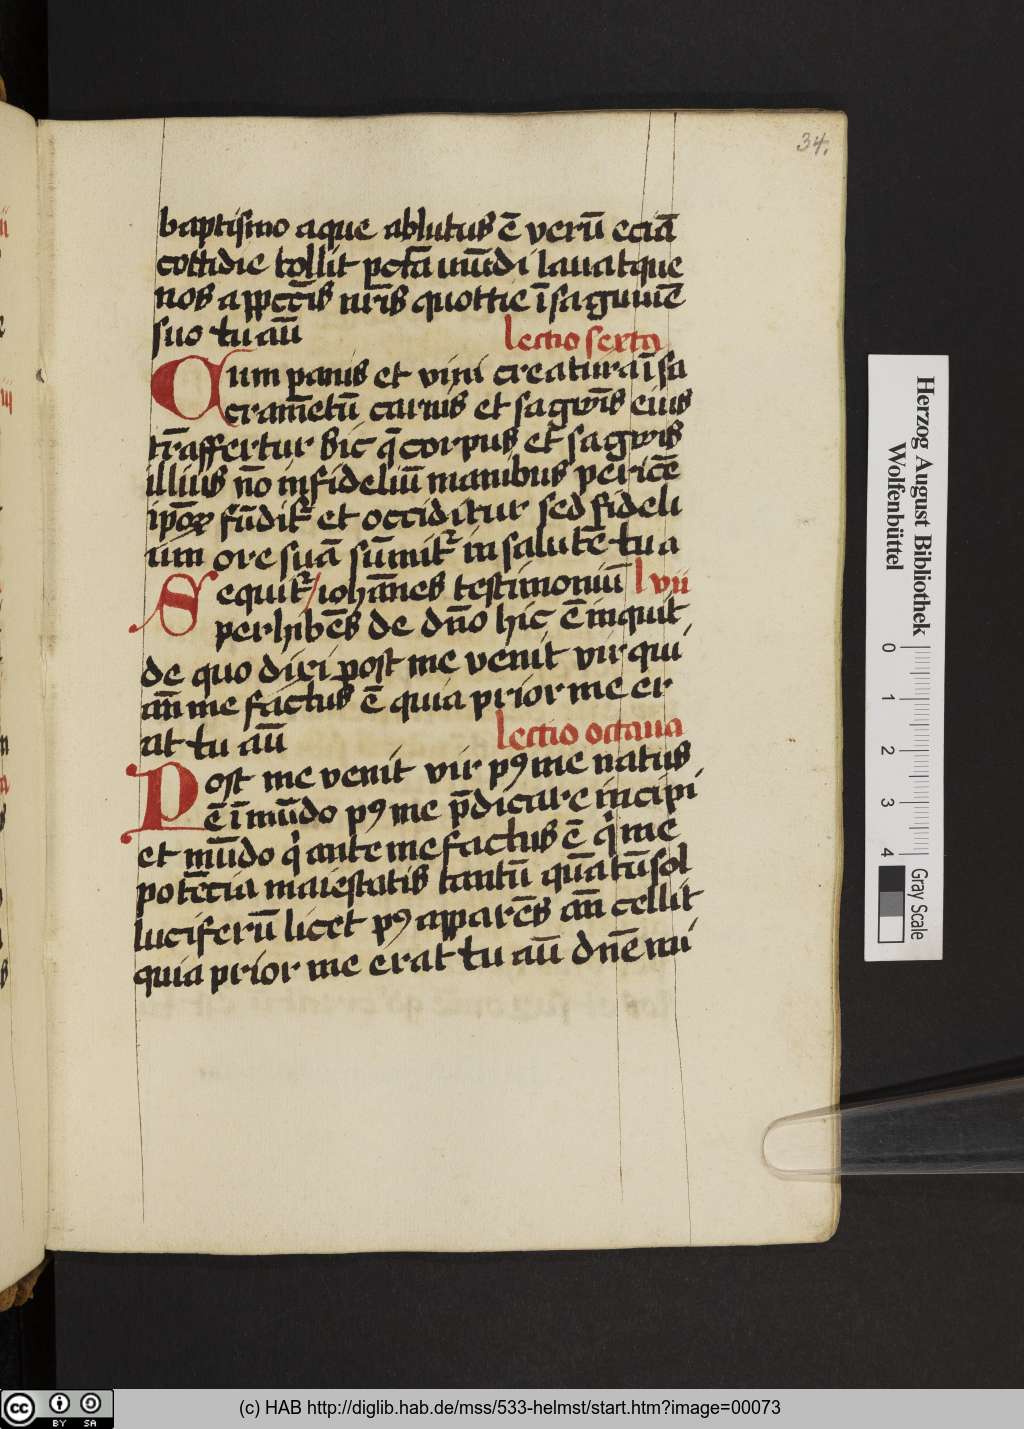 34.
baptismo aque ablutus ē verū eciā
cottidie tollit pctā mūdi lauatque
nos a ppctīs nrīs quottie ī sagwīe
suo tu aū
lectio sexta
Cum panis et vini creatura ī sa
cramētū carnis et sagwīs eius
trāffertur hic q̄ corpus et sagwis
illius nō infideliū manibus pericē
ipōꝝ fūditr̄ et occiditur sed fideli
um ore suā sūmitr̄ in salutē tu a
Sequitr̄ iohānes testimoniū l vii
perhibēs de dn̄o hic ē inquit
de quo dixi post me venit vir qui
an̄ me factus ē quia prior me er
at tu aū
lectio octaua
Post me venit vir pꝰ me natus
ē ī mūdo pꝰ me p̄dicare incipi
et mūdo q̇ ante me factus ē q̇ me
potēcia maiestatis tantū quātū sol
luciferū licet pꝰ apparēs an̄ cellit
quia prior me erat tu aū dn̄e mi
Herzog August Bibliothek
Wolfenbüttel
0 1 2 3 4
Gray Scale
cc BY SA
(c) HAB http://diglib.hab.de/mss/533-helmst/start.htm?image=00073